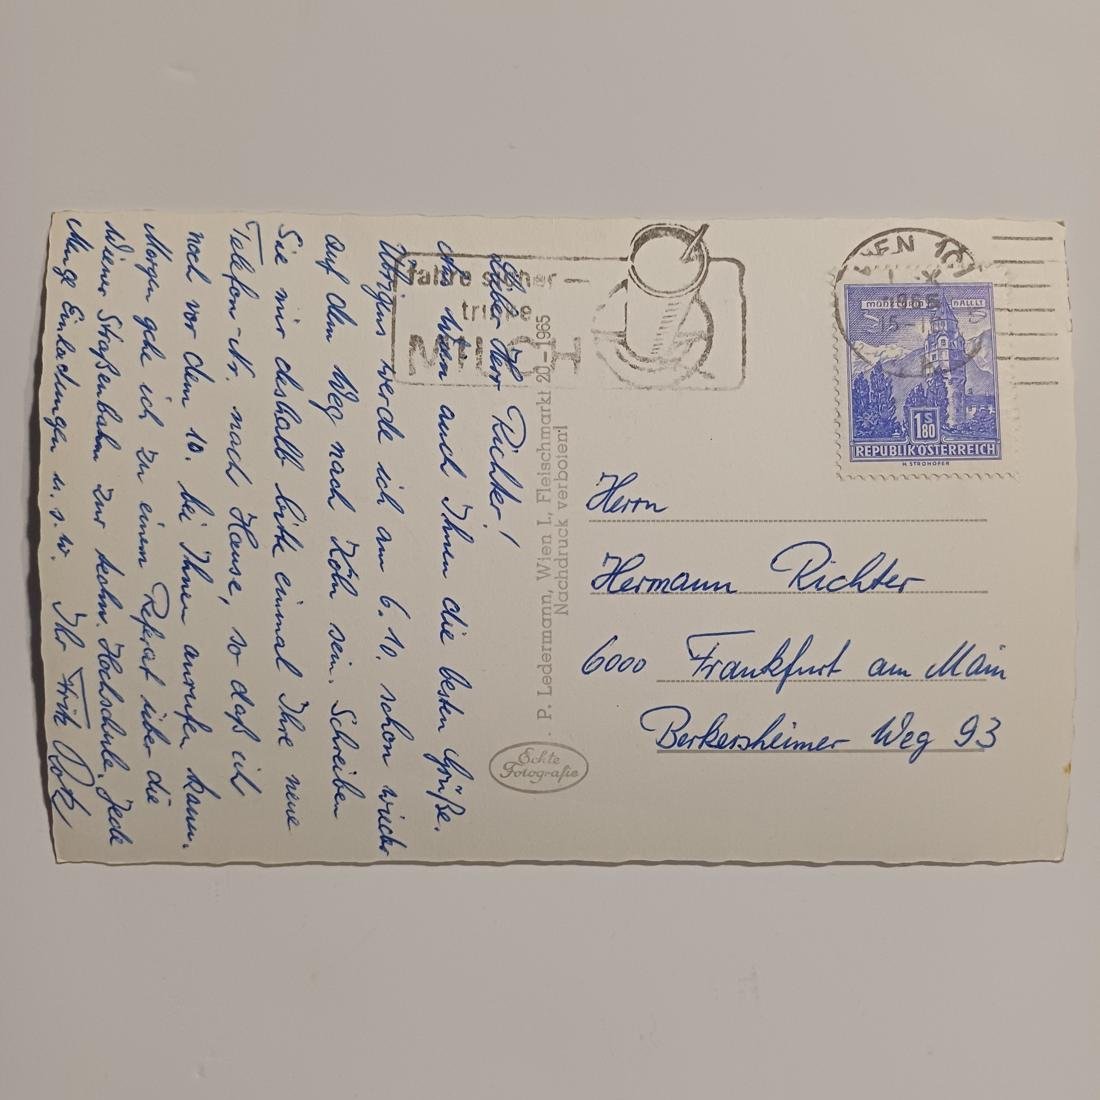 Lieber Herr Richter!
Aus Wien auch Ihnen die besten Grüße.
Übrigens werde ich am 6.10. schon wieder
auf dem Weg nach Köln sein. Schreiben
Sie mir deshalb bitte einmal Ihre neue
Telefon-Nr. nach Hause, so daß ich
noch vor dem 10. bei Ihnen anrufen kann.
Morgen gehe ich zu einem Referat über die
Wiener Straßenbahn zur techn. Hochschule. Jede
Menge Einladungen u.s.w. Ihr Fritz
fahre sicher —
trinke
MILCH
P. Ledermann, Wien I., Fleischmarkt 20 – 1965
Nachdruck verboten!
Echte
Fotografie
WIEN 101
1965
15
MÜNZTURM HALL I.T.
1 S 80
REPUBLIK ÖSTERREICH
H. STROHOFER
Herrn
Hermann Richter
6000 Frankfurt am Main
Berkersheimer Weg 93